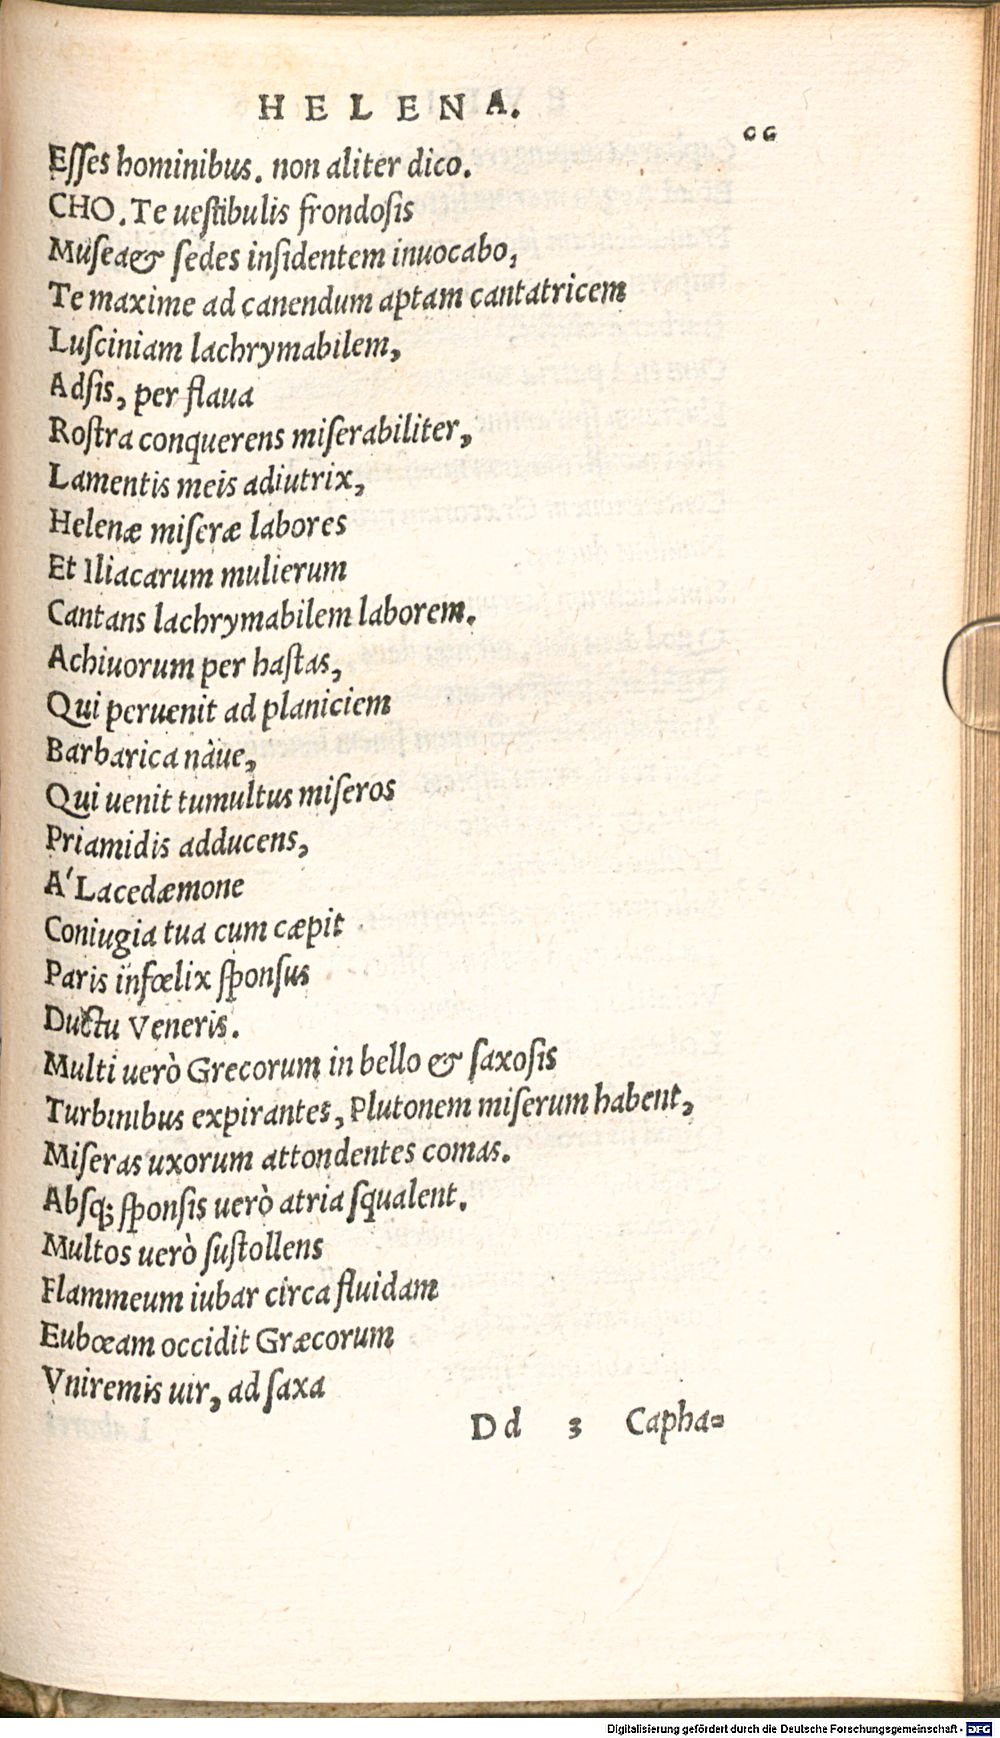 HELENA.
Eſſes hominibus. non aliter dico.
CHO. Te ueſtibulis frondoſis
Muſea & ſedes inſidentem inuocabo,
Te maxime ad canendum aptam cantatricem
Luſciniam lachrymabilem,
Adſis, per flaua
Roſtra conquerens miſerabiliter,
Lamentis meis adiutrix,
Helenæ miſeræ labores
Et Iliacarum mulierum
Cantans lachrymabilem laborem.
Achiuorum per haſtas,
Qui peruenit ad planiciem
Barbarica nàue,
Qui uenit tumultus miſeros
Priamidis adducens,
A' Lacedæmone
Coniugia tua cum cæpit
Paris infœlix ſponſus
Ductu Veneris.
Multi uerò Grecorum in bello & ſaxoſis
Turbinibus expirantes, Plutonem miſerum habent,
Miſeras uxorum attondentes comas.
Abſq; ſponſis uerò atria ſqualent.
Multos uerò ſuſtollens
Flammeum iubar circa fluidam
Eubœam occidit Græcorum
Vniremis uir, ad ſaxa
Dd 3 Capha=
Digitalisierung gefördert durch die Deutsche Forschungsgemeinschaft - DFG